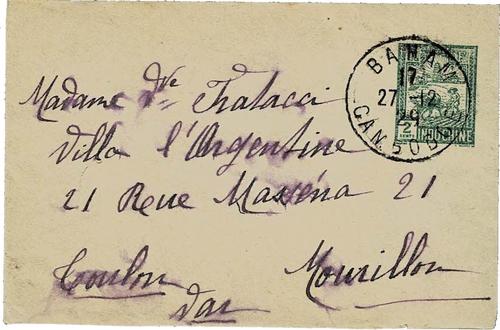 Madame Vve Fratacci
Villa l'Argentine
21 Rue Masséna 21
Toulon Mourillon
Var
BANAM
17
27-12
29
CAMBODGE
2
INDOCHINE